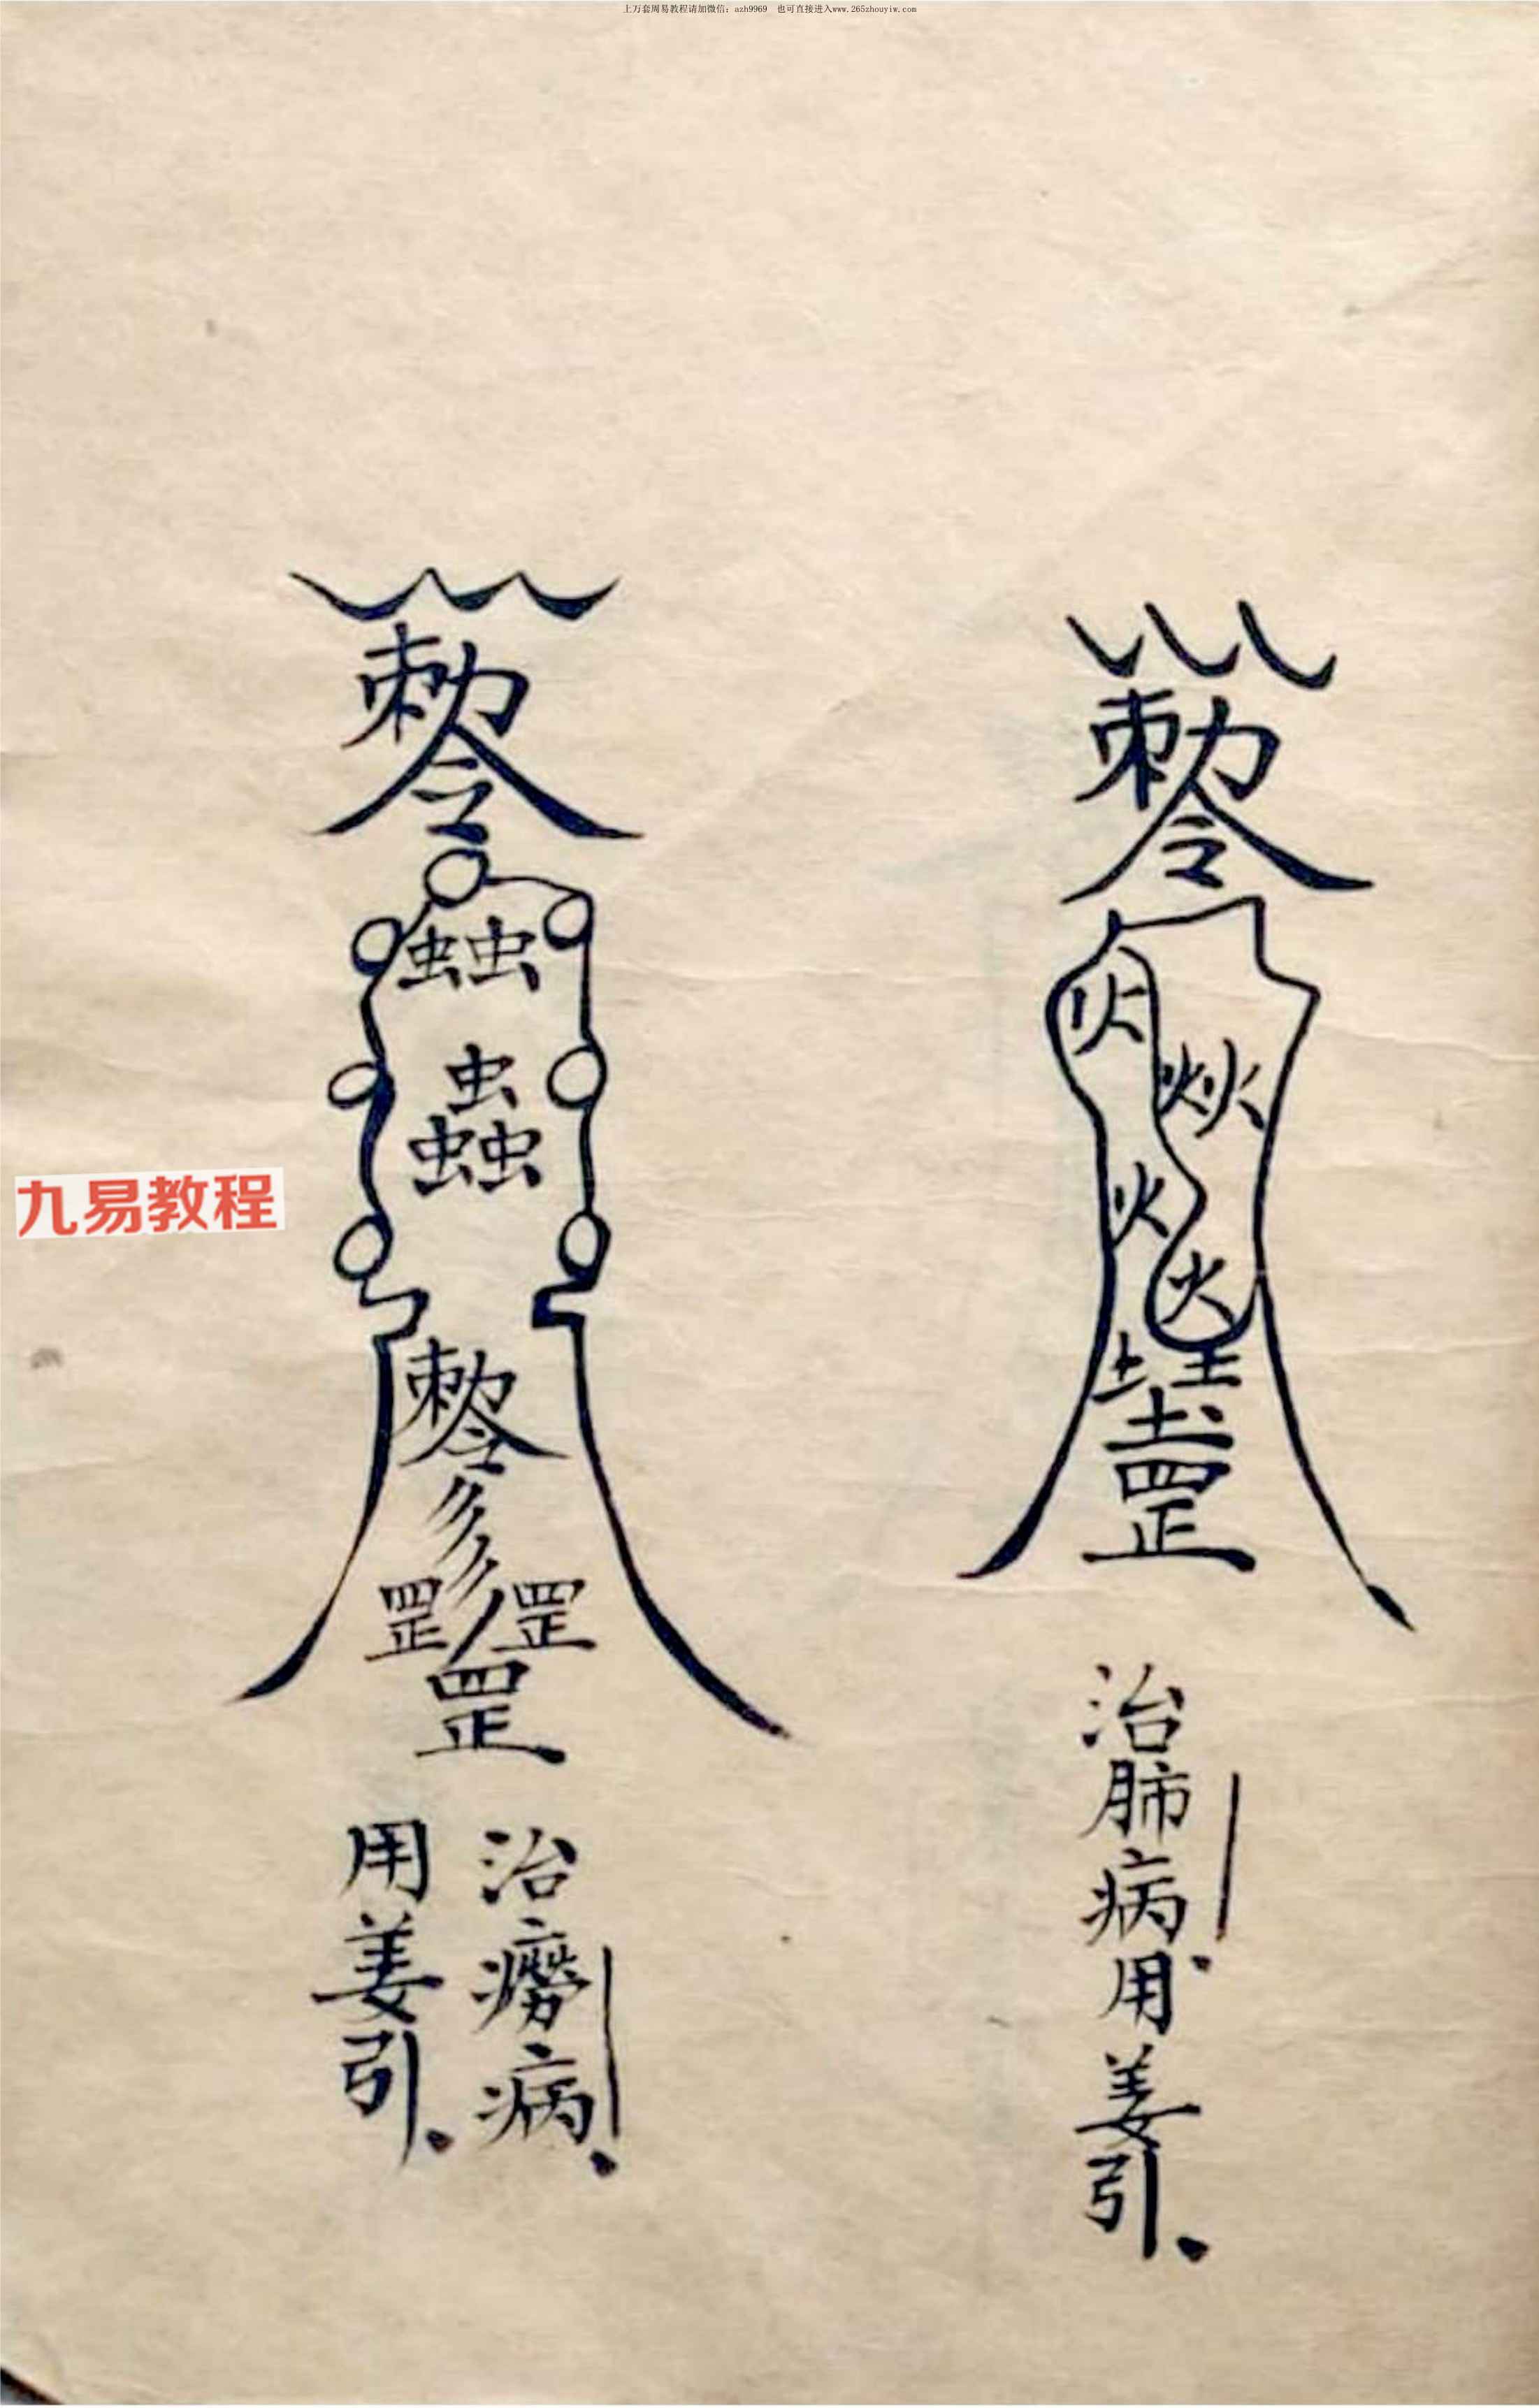 上万套周易教程请加微信：azh9969　也可直接进入www.265zhouyiw.com
勅令
火
火火
火
火
土土
土
罡
治肺病用姜引
勅令
虫虫
虫
虫虫
勅令
罡罡
罡
治痨病
用姜引
九易教程